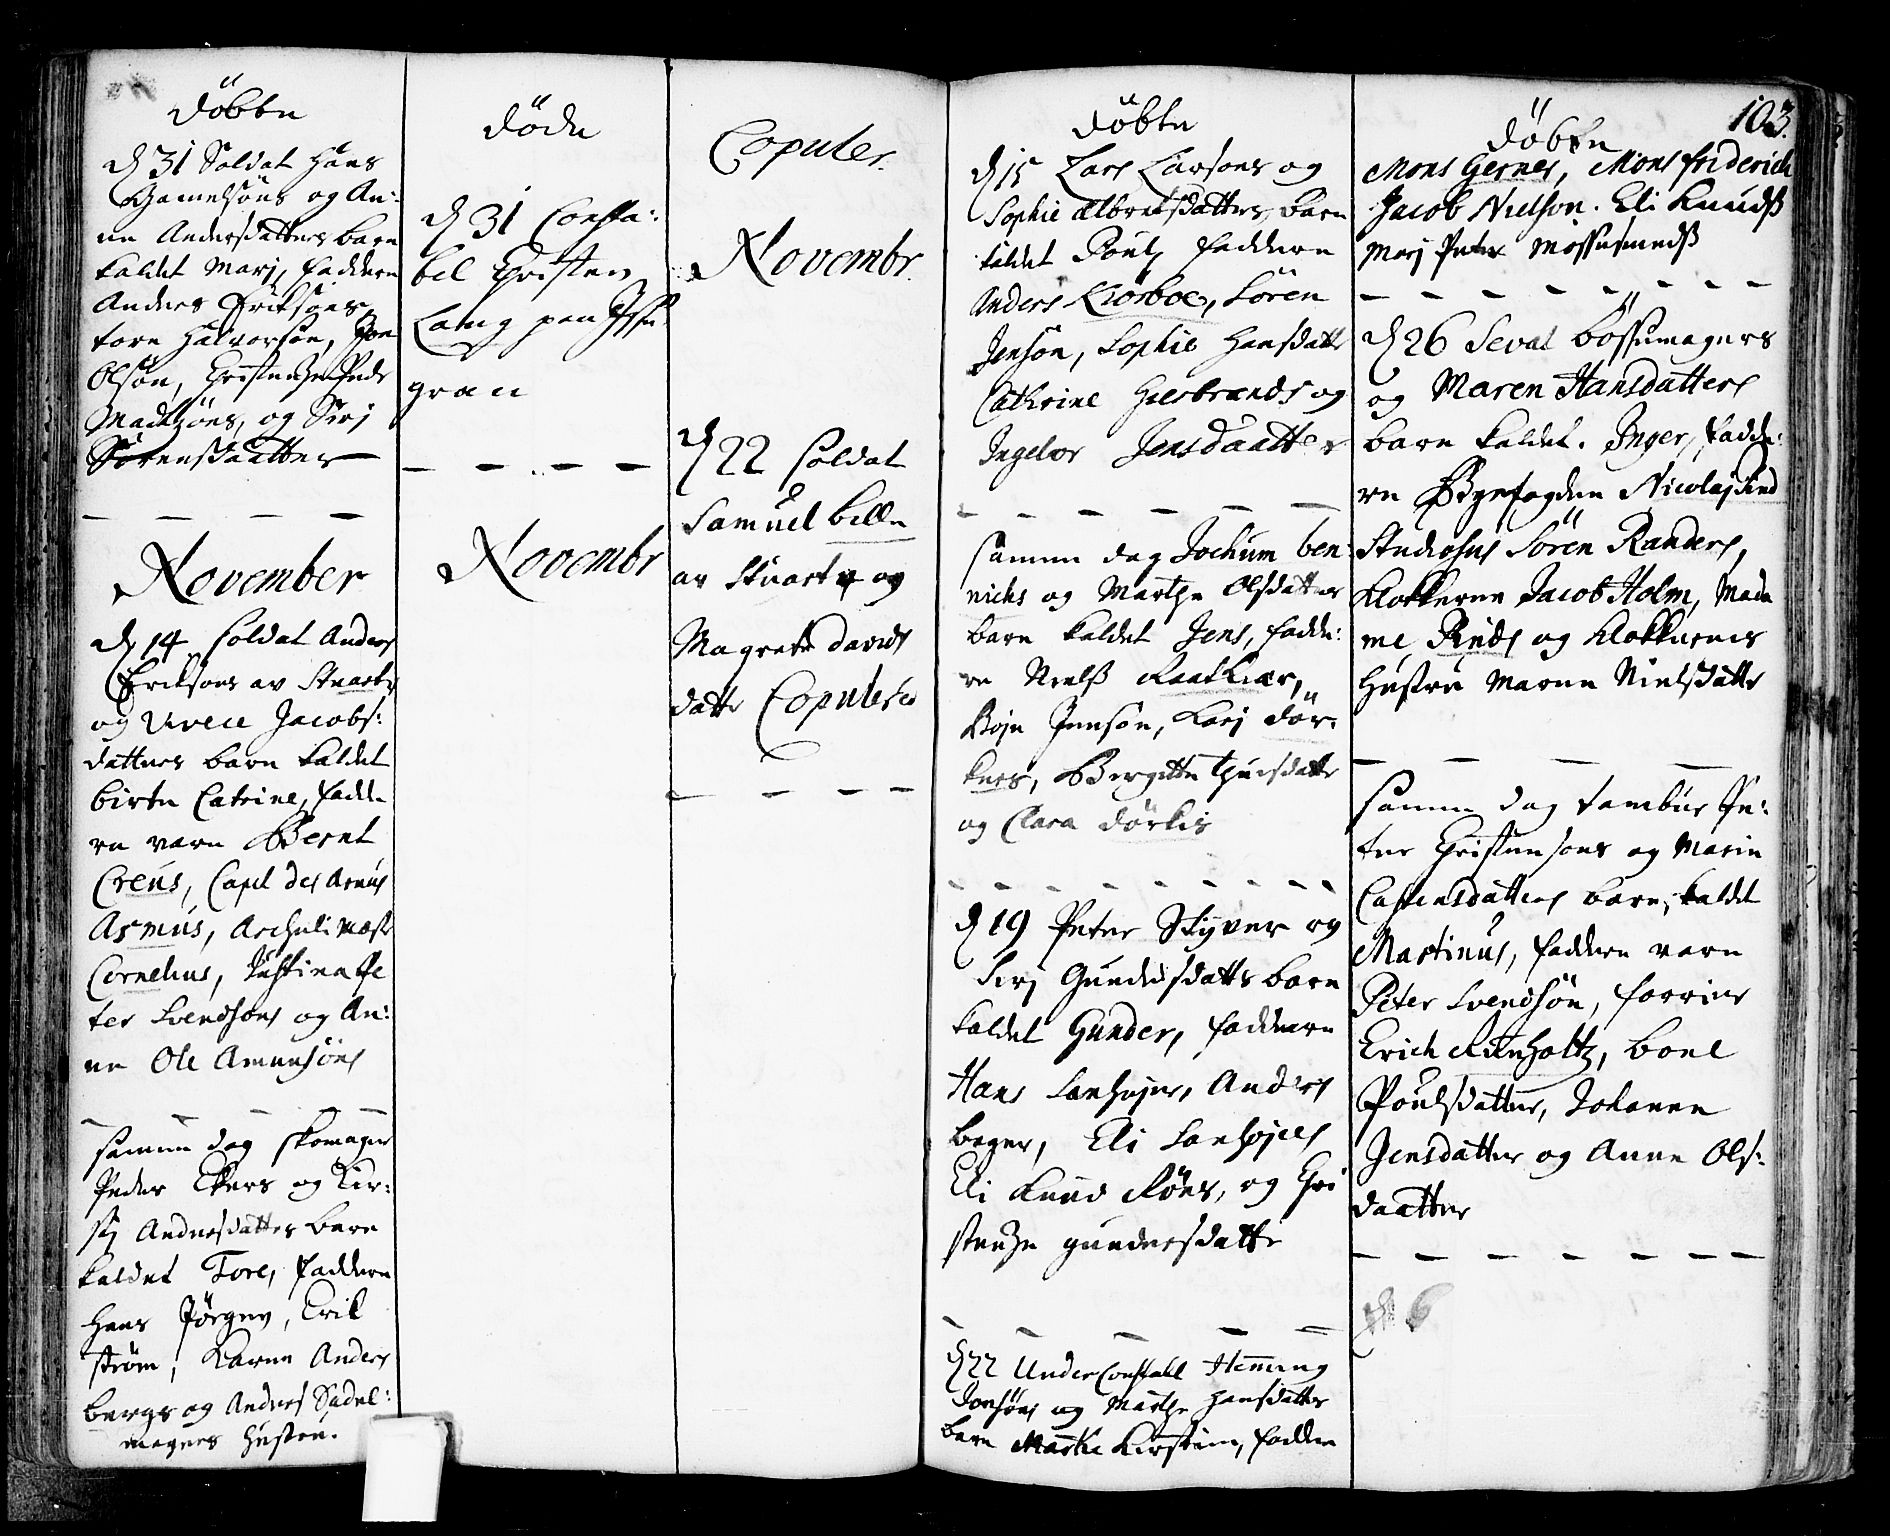 Döbte
D 31 Soldat Hans
Gamelsöns og An:
ne Andersdatters barn
kaldet Marj, faddere
Anders Eriksøns,
tore Halvorsön, Jon
Olsön, Christentze Peder
Madtzöns, og Sirj
Sörensdaatter
November
D 14 Soldat Anders
Eriksöns av Stuarts
og Vivece Jacobs:
datters barn kaldet
birte Catrine, fadde
re vare Bernt
Creus, Capt des Armes
Asmus,
Cornelius, Justina Pe
ter Svendsöns og An:
ne Ole Amunsöns
samme dag skomager
Peder Ekers og Kir:
stj Andersdatters barn
kaldet Tore, faddere
Hans Jörgen, Erik
ström, Karen Anders
bergs og Anders Sadel:
magers hustru.
döde
D 31 Consta:
bel Christen
Lang
gran
Novembr
Copuler.
Novembr.
D 22 Soldat
Samuel bille
av Stuart og
Magrete davids
datter Copulered
döbte
D 15 Lars Larsöns og
Sophie Albretsdatters barn
kaldet Poul, faddere
Anders Korboe, Sören
Jensön, Sophie Hansdatter
Cathrine Hilbrands og
Ingebor Jensdaatter
samme dag Jochum ben
nichs og Marthe Olsdatters
barn kaldet Jens, fadde:
re Niels Raatkiær,
Boje Jensön, Karj dör:
kers, Birgitte
og Clara dörkis
D 19 Peter Styver og
Sirj Gundersdatters barn
kaldet Gunder, faddere
Hans Lanhøjer, Anders
beger, Eli Lanhøjers
Eli Knud Röers, og Chri
stentze gundersdatter
D 22 Under Constabel Hemming
Jonsöns og Marthe Hansdatters
barn Marthe Kirstine, faddere
103.
döbte
Mons Gerner, Mons friderich
Jacob Nielson. Eli Knuds
Marj Peter Mossesmeds
D 26 Sevat bössemagers
og Maren Hansdatters
barn kaldet. Inger, fadde:
re Byefogden Nicolaj Rind
Studiosus Sören Randers,
Klokkeren Jacob Holm, Mada
me Rinds og Klokkerens
Hustru Maren Nielsdatter
samme dag tambur Pe:
ter Christensöns og Marin
Castensdatters barn, kaldet
Martinus, faddere vare
Peter Svendsön, forrier
Erich Rienholtz, boel
Poulsdatter, Johanne
Jensdatter og Anne Ols:
daatter
D 6